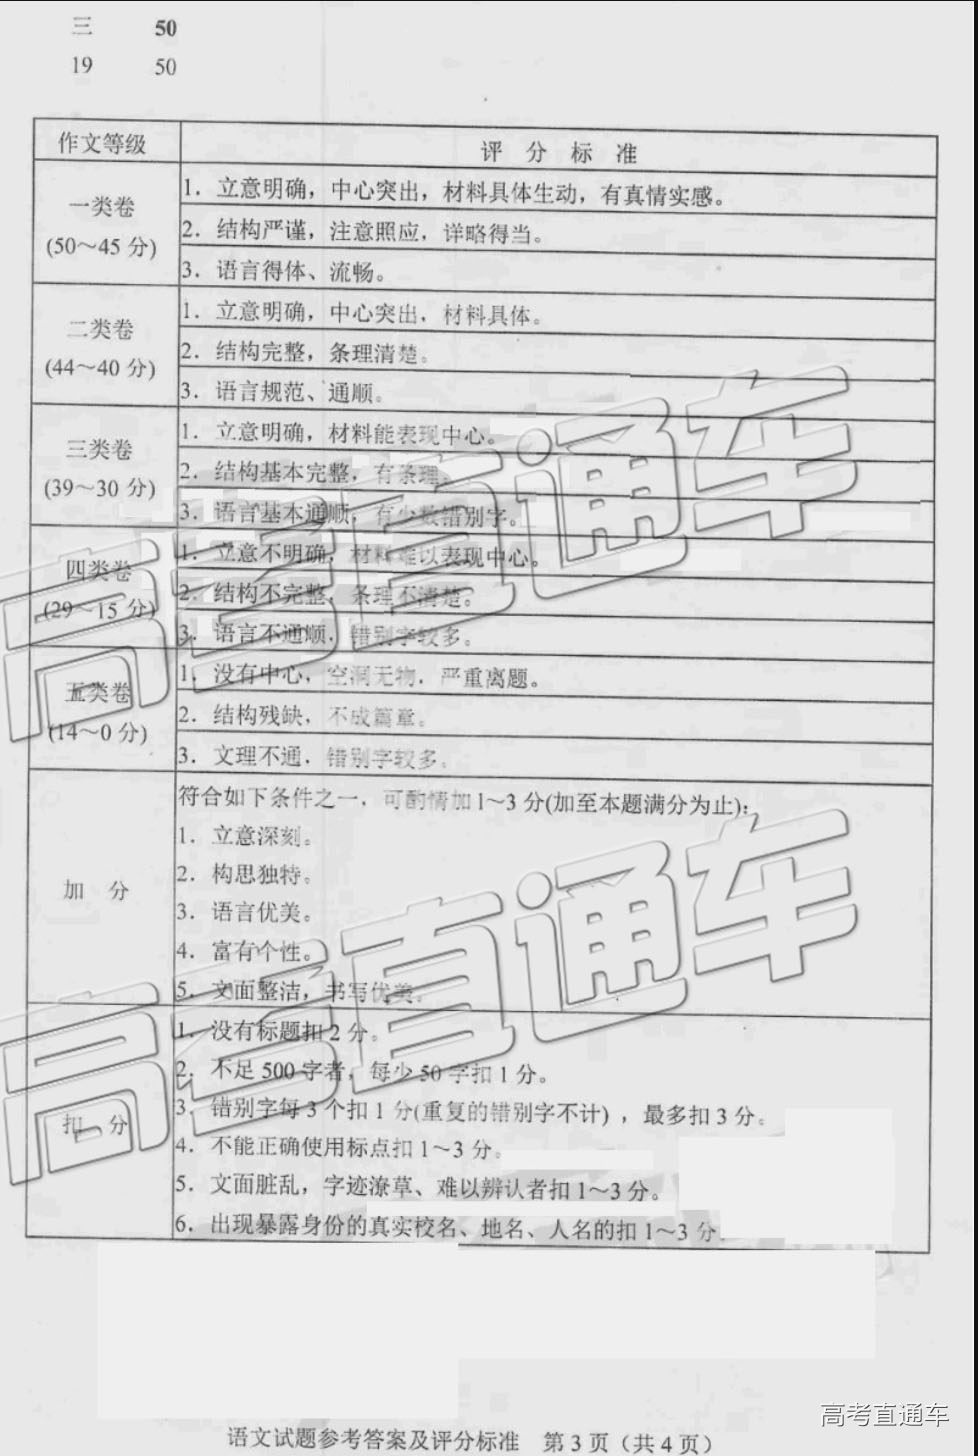 三 50
19 50
作文等级 评 分 标 准
一类卷
(50～45 分)
1. 立意明确，中心突出，材料具体生动，有真情实感。
2. 结构严谨，注意照应，详略得当。
3. 语言得体、流畅。
二类卷
(44～40 分)
1. 立意明确，中心突出，材料具体。
2. 结构完整，条理清楚。
3. 语言规范、通顺。
三类卷
(39～30 分)
1. 立意明确，材料能表现中心。
2. 结构基本完整，有条理。
3. 语言基本通顺，有少数错别字。
四类卷
(29～15 分)
1. 立意不明确，材料难以表现中心。
2. 结构不完整，条理不清楚。
3. 语言不通顺，错别字较多。
五类卷
(14～0 分)
1. 没有中心，空洞无物，严重离题。
2. 结构残缺，不成篇章。
3. 文理不通，错别字较多。
加 分
符合如下条件之一，可酌情加 1～3 分(加至本题满分为止)：
1. 立意深刻。
2. 构思独特。
3. 语言优美。
4. 富有个性。
5. 文面整洁，书写优美。
扣 分
1. 没有标题扣 2 分。
2. 不足 500 字者，每少 50 字扣 1 分。
3. 错别字每 3 个扣 1 分(重复的错别字不计)，最多扣 3 分。
4. 不能正确使用标点扣 1～3 分。
5. 文面脏乱，字迹潦草、难以辨认者扣 1～3 分。
6. 出现暴露身份的真实校名、地名、人名的扣 1～3 分.
高考直通车
高考直通车
高考直通车
语文试题参考答案及评分标准 第 3 页（共 4 页）